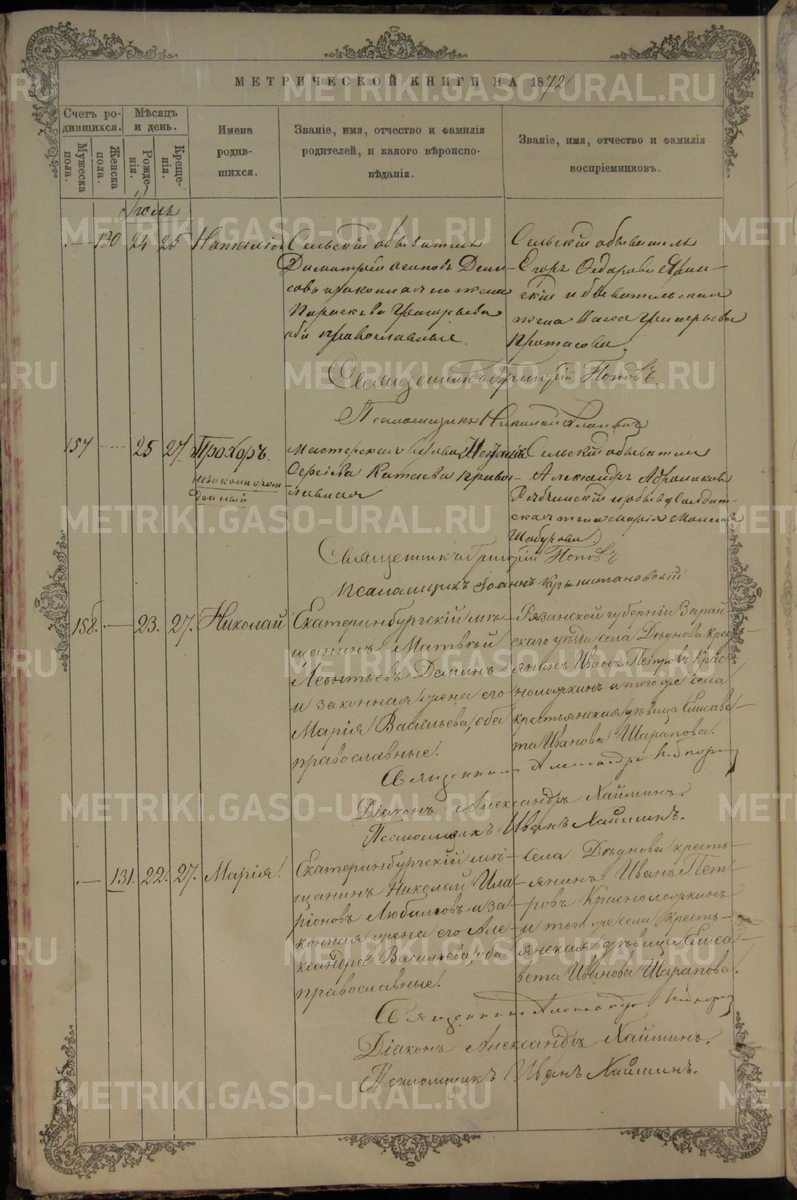 МЕТРИЧЕСКОЙ КНИГИ НА 1872
Счетъ ро-
дившихся.
Мѣсяцъ
и день.
Мужеска
пола.
Женска
пола.
Рожде-
нія.
Креще-
нія.
Имена
родив-
шихся.
Званіе, имя, отчество и фамилія
родителей, и какого вѣроиспо-
вѣданія.
Званіе, имя, отчество и фамилія
воспріемниковъ.
130 24 25 Наталія
Сельскій обыватель
Димитрій Осиповъ Дени-
совъ и законная его жена
Параскева Григорьева
оба православные.
Сельскій обыватель
Егоръ Федоровъ
жена
Протасова.
Священникъ Григорій Поповъ
Псаломщикъ Николай
157 25 27. Прохоръ.
незаконнорож-
денный
Мастерская вдова
Сергіева Катаева право-
славная
Сельскій обыватель
Александръ
жена Марія
Священникъ Григорій Поповъ
Псаломщикъ Іоаннъ Крыжановскій
158. 23. 27. Николай
Екатеринбургскій мѣ-
щанинъ Матвѣй
Леонтьевъ Депинъ
и законная жена его
Марія Васильева, оба
православные.
Рязанской губерніи Зарай-
скаго уѣзда села Дѣднова крес-
янинъ Иванъ Петровъ Крас-
ноложкинъ и того же села
крестьянская дѣвица Елисаве-
та Иванова Шарапова.
Священникъ Александръ
Діаконъ Александръ Хайминъ.
Псаломщикъ Иванъ Хайминъ.
131. 22. 27. Марія.
Екатеринбургскій мѣ-
щанинъ Николай Ила-
ріоновъ Любимовъ и за-
конная жена его Але-
ксандра Васильева, оба
православные.
Села Дѣднова кресть-
янинъ Иванъ Пет-
ровъ Красноложкинъ
и того же села кресть-
янская дѣвица Елиса-
вета Иванова Шарапова.
Священникъ Александръ
Діаконъ Александръ Хайминъ.
Псаломщикъ Иванъ Хайминъ.
METRIKI.GASO-URAL.RU